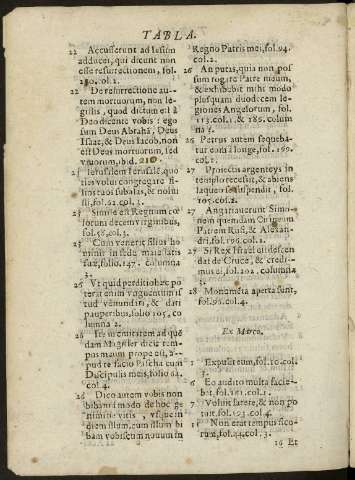 TABLA.
22 Accusserunt ad Iesum
adducei, qui dicunt non
esse resurrectionem, fol.
col.1.
22 De resurrectione au-
tem mortuorum, non le-
gistis, quod dictum est à
Deo dicente vobis: ego
sum Deus Abrahã, Deus
Isaac, & Deus Iacob, non
est Deus mortuorum, sed
viuorum, ibid.
Ierusalem Ierusalẽ, quo
ties volui congregare fi-
lios tuos subalas, & nolui
sti, fol.62.col.2.
25 Simile est Regnum cœ
lorum decem virginibus,
fol.58.col.3.
25 Cum venerit filius ho
minis in sede maiestatis
suæ, folio.147. columna
2.
26 Vt quid perditio hæc po
terat enim vnguentum is
tud venundari, & dari
pauperibus, folio 105, co
lumna 2.
26 Ite in ciuitatem ad quẽ
dam Magister dicit tem-
pus meum prope est, a-
pud te facio Pascha cum
Discipulis meis, folio
col.4.
26 Dico autem vobis non
bibam á modo de hoc ge
nimine vitis, vsque in
diem illum, cum illum bi
bam vobiscum nouum in
Regno Patris mei, fol.94.
col.2.
26 An putas, quia non pos
sum rogare Patre meum,
& exhibebit mihi modo
plusquam duodecem le-
giones Angelorum, fol.
113.col.1.& 185. colum
na 1.
26 Petrus autem sequeba-
tur eum á longe, fol.160.
col.1.
27 Proiectis argenteys in
templo recessit, & abiens
laqueo se suspendit, fol.
105.col.2.
27 Angariauerunt Simo-
nem quendam Cirineum
Patrem Rufi, & Alexan-
dri, fol.196.col.1.
27 Si Rex Israel est descen
dat de Cruce, & credi-
mus ei, fol.202. columna
3.
28 Monumeta aperta sunt,
fol.96.col.4.
Ex Marco.
1 Expulit eum, fol.10.col.
3.
6 Eo audito multa facie-
bat, fol.161.col.1.
7 Voluit latere, & non po
tuit, fol.193.col.4
11 Non erat tempus fico-
rum, fol.44.col.3.
16 Et